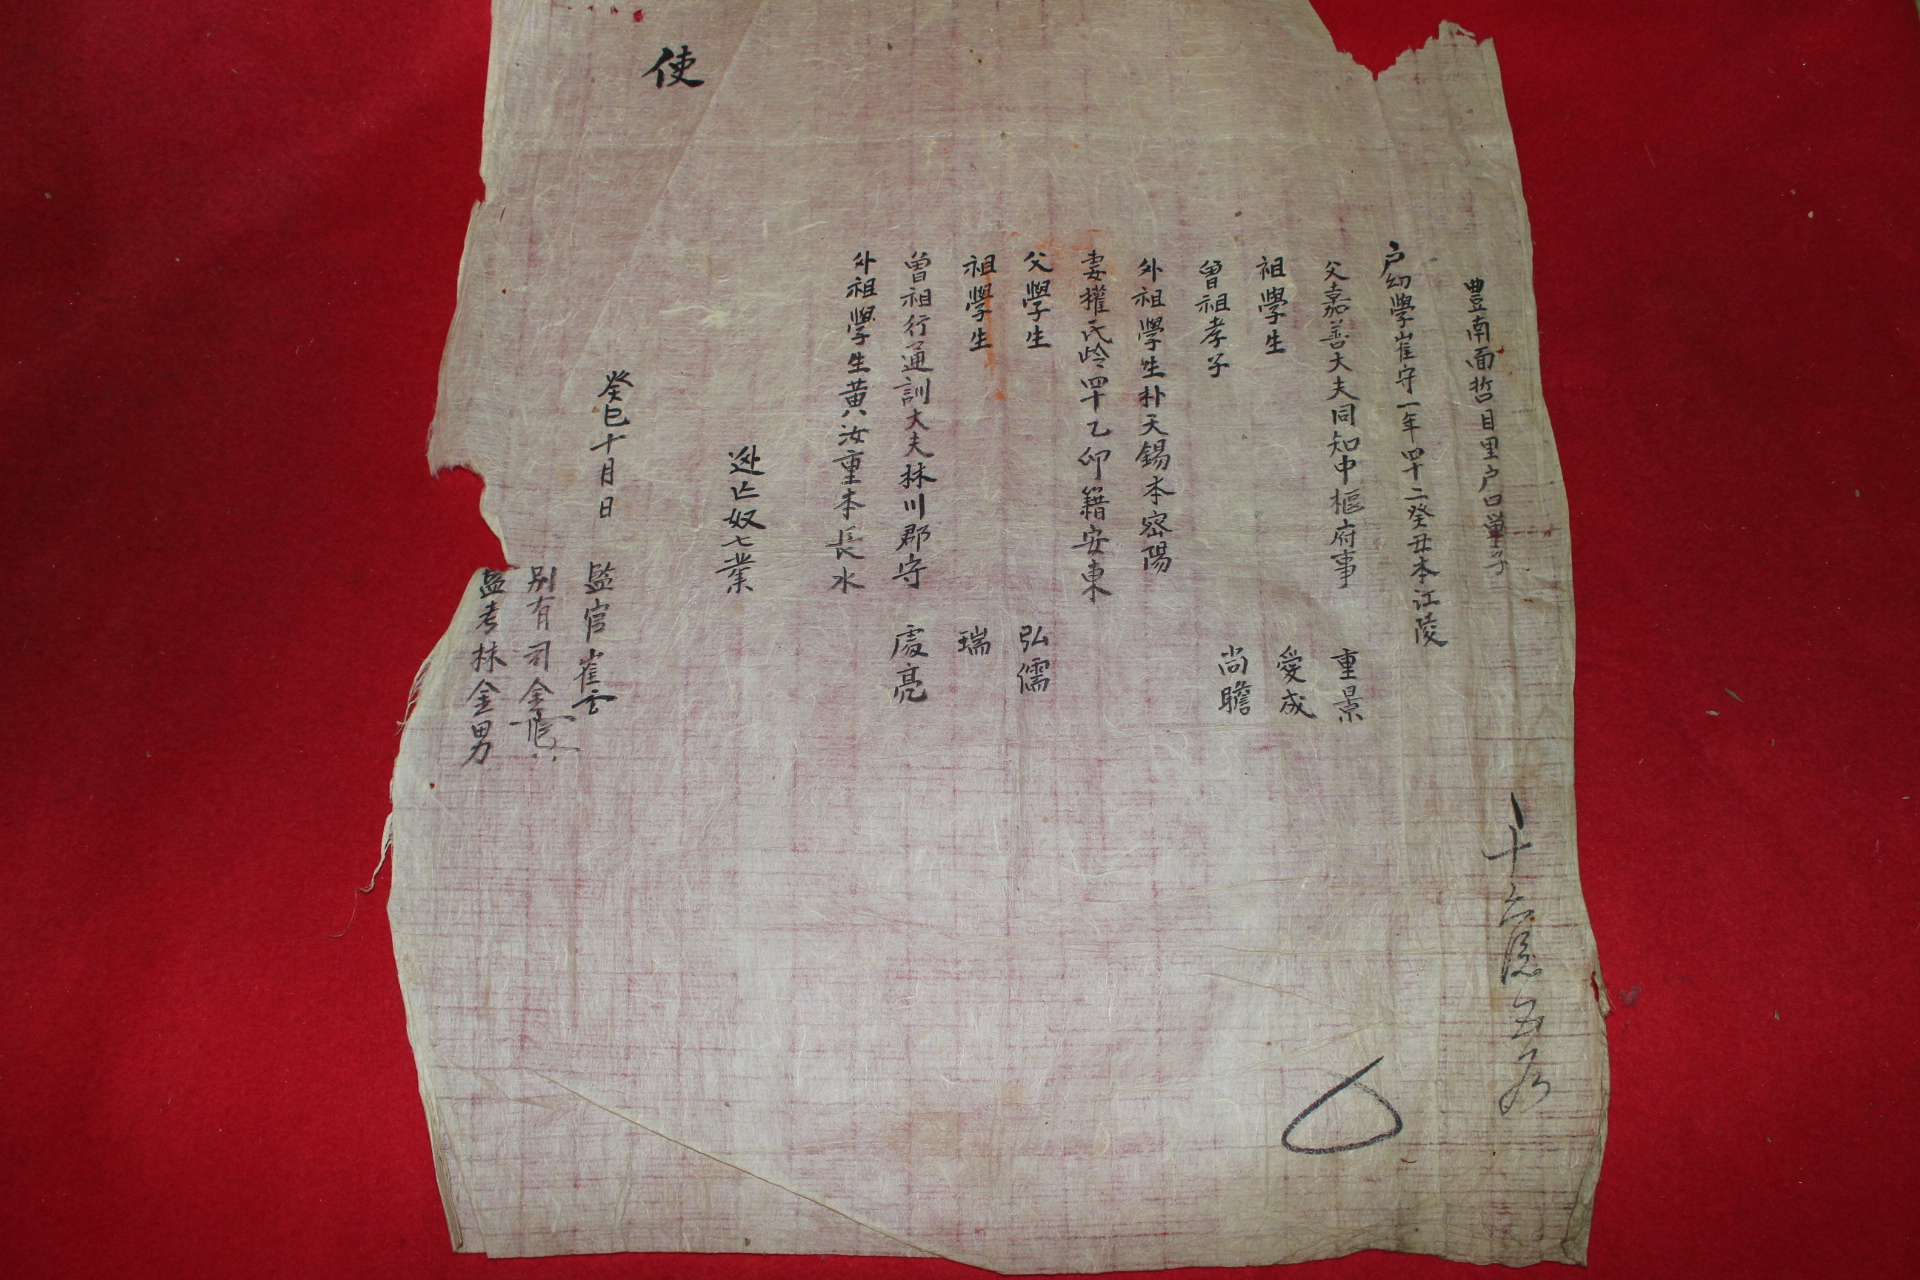 豊南面哲目里户口單子
户幼學崔守一年四十二癸丑本江陵
父嘉善大夫同知中樞府事 重景
祖學生 愛成
曾祖孝子 尚瞻
外祖學生朴天錫本密陽
妻權氏齡四十乙卯籍安東
父學生 弘儒
祖學生 瑞
曾祖行通訓大夫林川郡守 處亮
外祖學生黄汝重本長水
逃亡奴七業
使
癸巳十月日 監官崔
別有司金
監考林金男
十六統五户